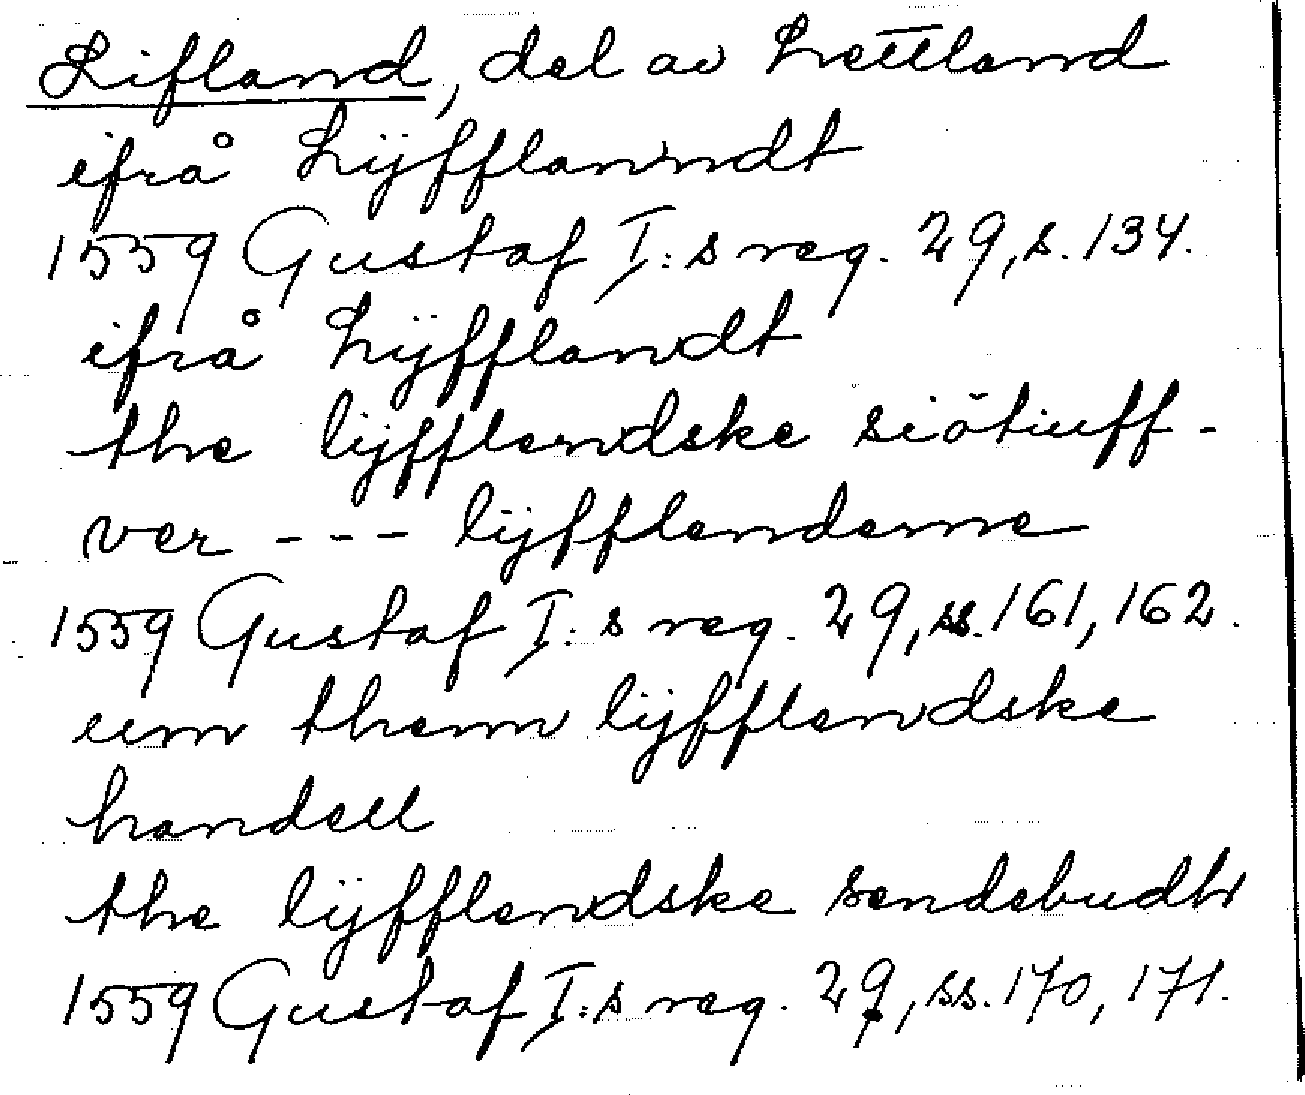 Lifland, del av Lettland
ifrå Lijfflanndt
1559 Gustaf I:s reg. 29, s. 134.
ifrå Lijfflandt
the lijfflendske siötiuff-
ver --- lijfflenderne
1559 Gustaf I:s reg. 29, ss. 161, 162.
um them lijfflendske
handell
the lijfflendske sendebudh
1559 Gustaf I:s reg. 29, ss. 170, 171.